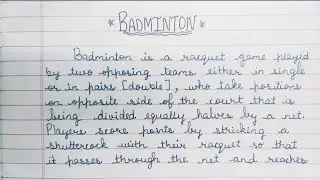 *BADMINTON*
Badminton is a racquet game played
by two opposing teams either in single
or in pairs [double], who take positions
on opposite side of the court that is
being divided equally halves by a net.
Players score points by stricking a
shuttercock with their racquet so that
it passes through the net and reaches